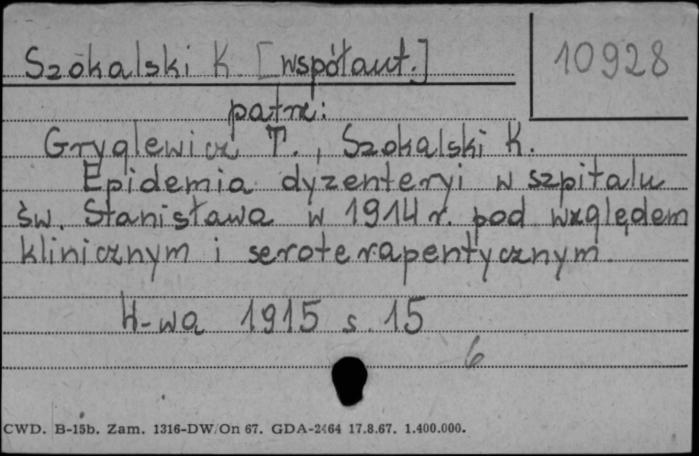 Szokalski K. [współaut.]
10928
patrz:
Gryglewicz T., Szokalski K.
Epidemia dyzenteryi w szpitalu
św. Stanisława w 1914 r. pod względem
klinicznym i seroterapentycznym.
W-wa 1915 s. 15
6
CWD. B-15b. Zam. 1316-DW/On 67. GDA-2464 17.8.67. 1.400.000.